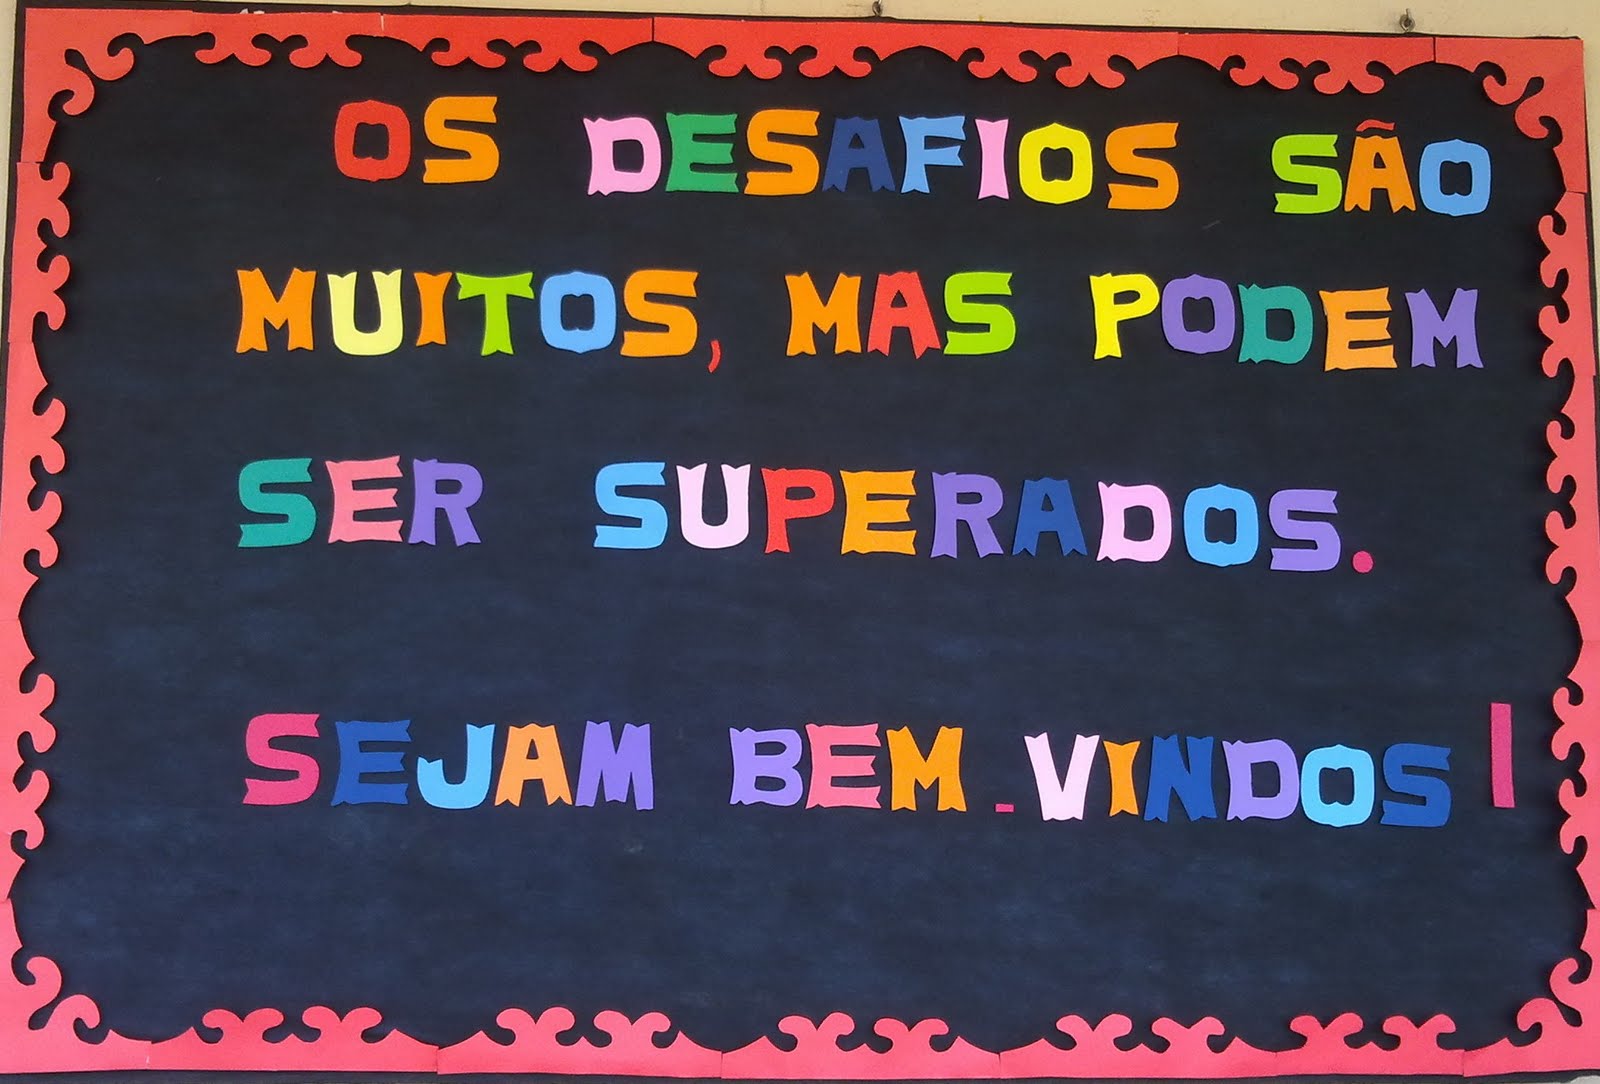 OS DESAFIOS SÃO
MUITOS, MAS PODEM
SER SUPERADOS.
SEJAM BEM-VINDOS!